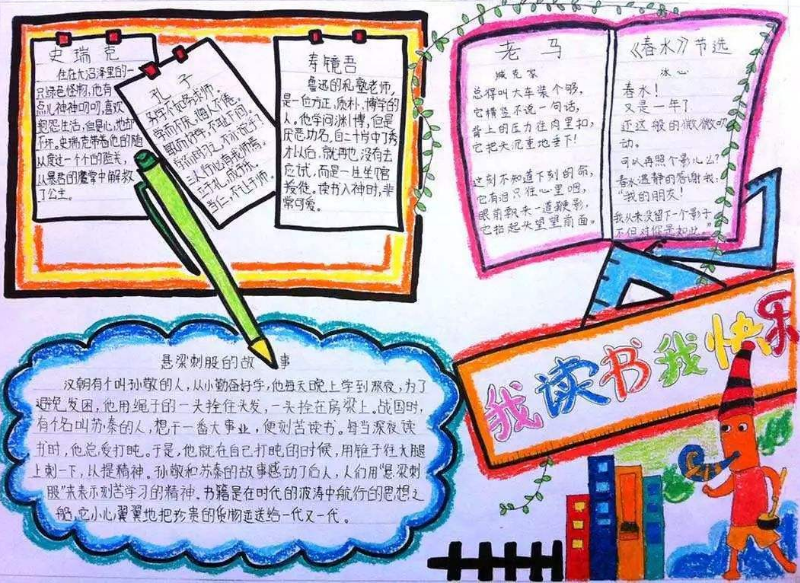 史瑞克
住在大沼泽里的一
只绿色怪物,他有
点儿神神叨叨,喜欢
邋遢生活,但是心地却
不坏。史瑞克带着他的朋
从度过一个个的险关,
从暴君的魔掌中解救
了公主。
孔子
学而不厌,诲人不倦。
敏而好学,不耻下问。
三人行必有我师焉。
当仁,不让于师。
寿镜吾
鲁迅的私塾老师,
是一位方正,质朴,博学的
人,他学问渊博,但是
厌恶功名,自二十岁中了秀
才以后,就再也没有去
应试,而是一生坐馆
授徒。读书入神时,非
常可爱。
老马
臧克家
总得叫大车装个够,
它横竖不说一句话,
背上的压力往肉里扣,
它把头沉重地垂下!
这刻不知道下刻的命,
它有泪只往心里咽,
眼前飘来一道鞭影,
它抬起头望望前面。
《春水》节选
冰心
春水!
又是一年了
还这般的微微吹
动。
可以再照个影儿么?
春水温静的答谢我:
“我的朋友!
我从来没留下一个影子
不但对你是如此。”
我读书我快乐
悬梁刺股的故事
汉朝有个叫孙敬的人,从小勤奋好学,他每天晚上学到深夜,为了
避免发困,他用绳子的一头拴住头发,一头拴在房梁上。战国时,
有个名叫苏秦的人,想干一番大事业,便刻苦读书。每当深夜读
书时,他总爱打盹。于是,他就在自己打盹的时候,用锥子往大腿
上刺一下,以提精神。孙敬和苏秦的故事感动了后人,人们用“悬梁刺
股”来表示刻苦学习的精神。书籍是在时代的波涛中航行的思想之
船,它小心翼翼地把珍贵的货物运送给一代又一代。